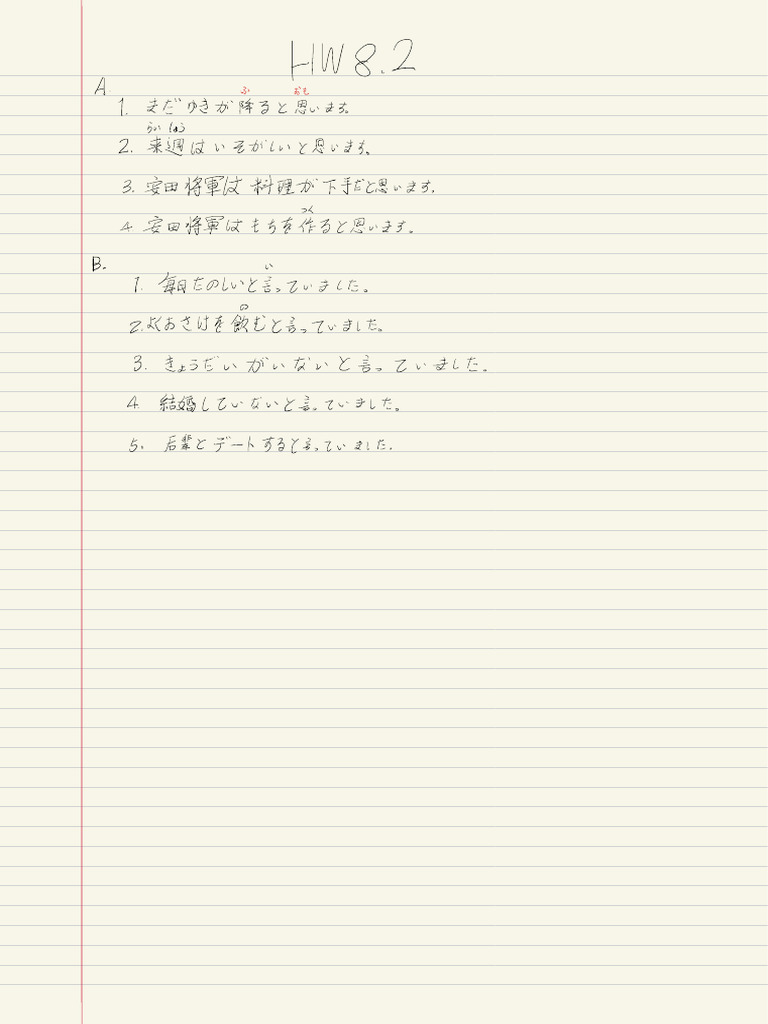 HW 8.2
A.
ふ おも
1. まだゆきが降ると思います。
らい しゅう
2. 来週はいそがしいと思います。
3. 安田将軍は料理が下手だと思います。
つく
4. 安田将軍はもちを作ると思います。
B.
い
1. 毎日たのしいと言っていました。
の
2. よくおさけを飲むと言っていました。
3. きょうだいがいないと言っていました。
4. 結婚していないと言っていました。
5. 后輩とデートすると言っていました.